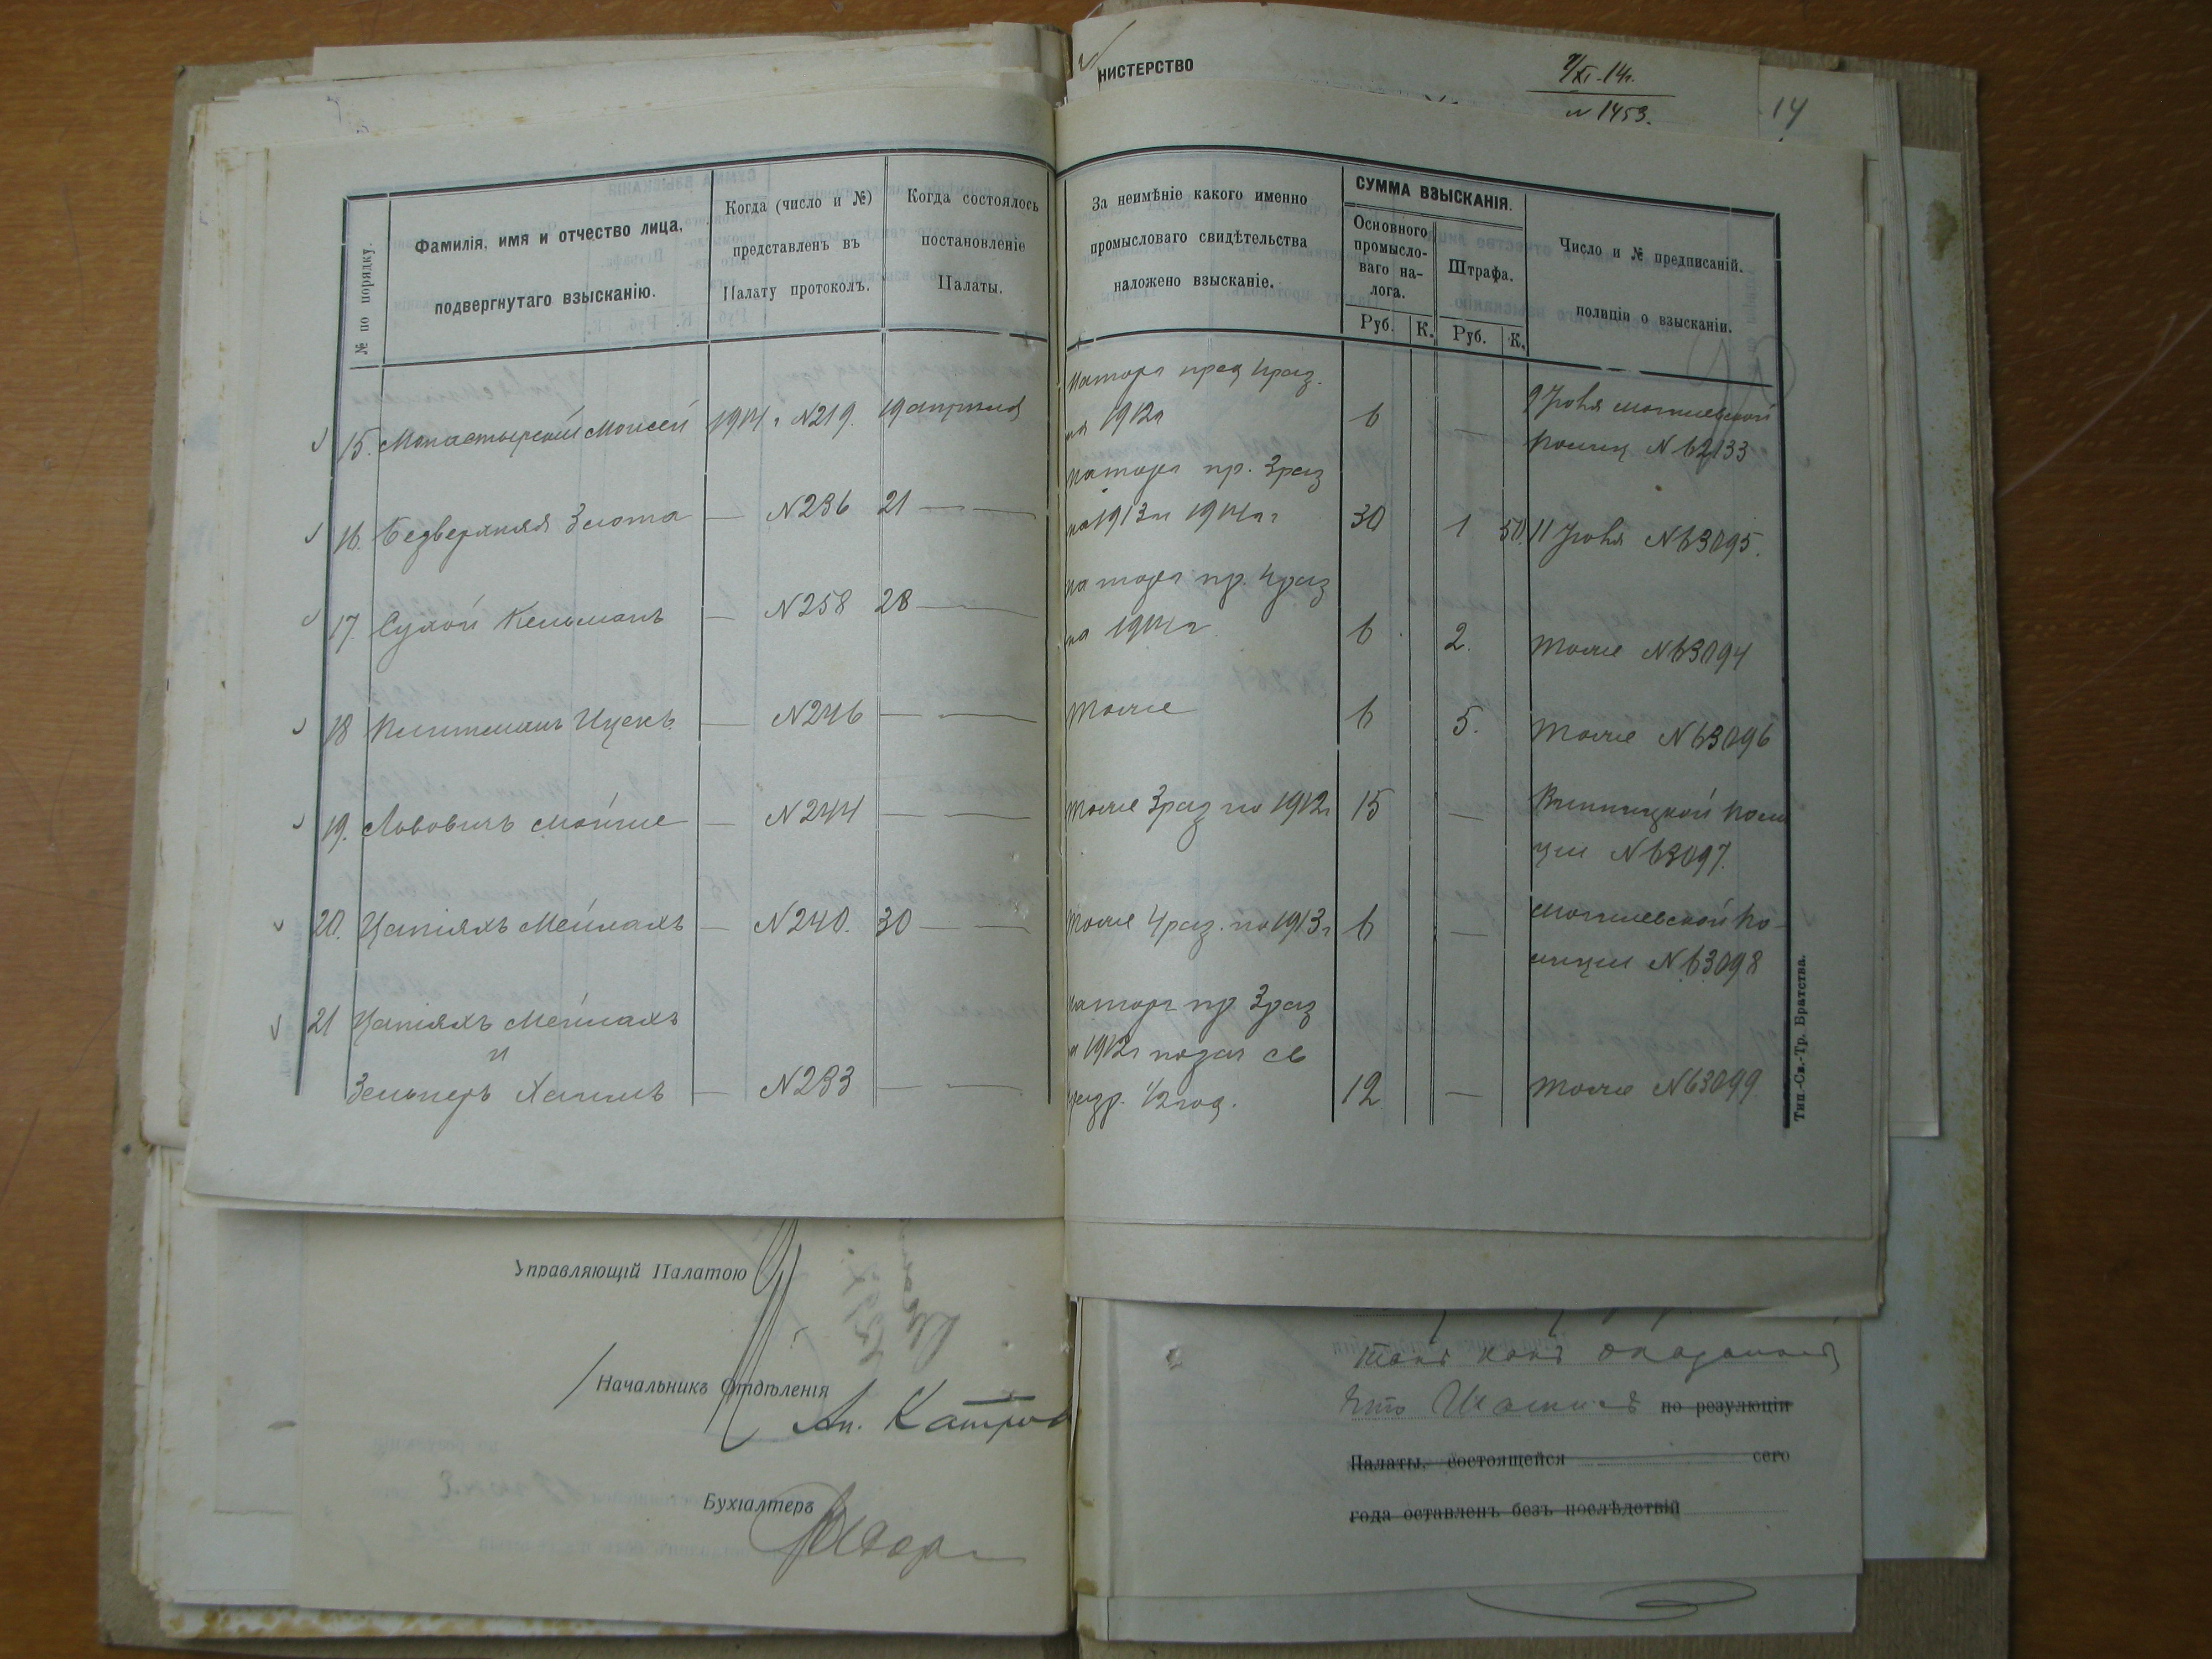 НИСТЕРСТВО
9/XI-14г.
№ 1453.
14
№ по порядку.
Фамилія, имя и отчество лица,
подвергнутаго взысканію.
Когда (число и №)
представленъ въ
Палату протоколъ.
Когда состоялось
постановленіе
Палаты.
За неимѣніе какого именно
промысловаго свидѣтельства
наложено взысканіе.
СУММА ВЗЫСКАНІЯ.
Основного
промысло-
ваго на-
лога.
Штрафа.
Руб. К. Руб. К.
Число и № предписаній.
полиціи о взысканіи.
15. Монастырскій Мойсей 1914 г N219. 19 апрѣля
на торг пред 4 раз.
на 1912г 6 —
9 Іюня могилевской
полиц N 62133
16. Бедверхняя Злота — N236 21 — —
на торг пр. 3 раз
на 1913 и 1914 г г 30 1 50. 11 Іюня N 63095.
17. Сухой Кельманъ — N258 28 —
на торг пр. 4 раз
на 1914 г 6 2. тоже N 63094
18 Ицекъ. — N246 — — тоже 6 5. тоже N 63096
19. Львовичъ Мойше — N244 — — тоже 3 раз на 1912г 15 — Винницкой поли
ціи N 63097.
20. Мейлахъ — N240. 30 — — тоже 4 раз. на 1913 г 6 — могилевской по-
лиціи N 63098
21 Мейлахъ
и
Зельцеръ — N233 — —
на торг пр 3 раз
1912г св
1/2 год. 12 — тоже N 63099
Тип.-Св.-Тр. Братства.
Управляющій Палатою
Начальникъ Отдѣленія
Бухгалтеръ
такъ какъ
что по резулюціи
Палаты, состоящейся сего
года оставленъ безъ послѣдствій